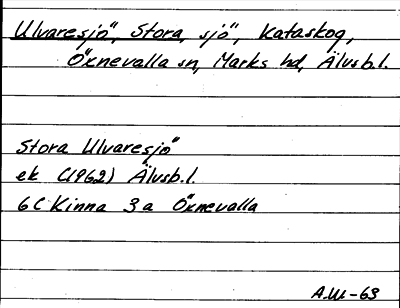 Ulvaresjö, Stora, sjö, Kataskog,
Öxnevalla sn, Marks hd, Älvsb.l.
Stora Ulvaresjö
ek (1962) Älvsb.l.
6C Kinna 3a Öxnevalla
A.W-63